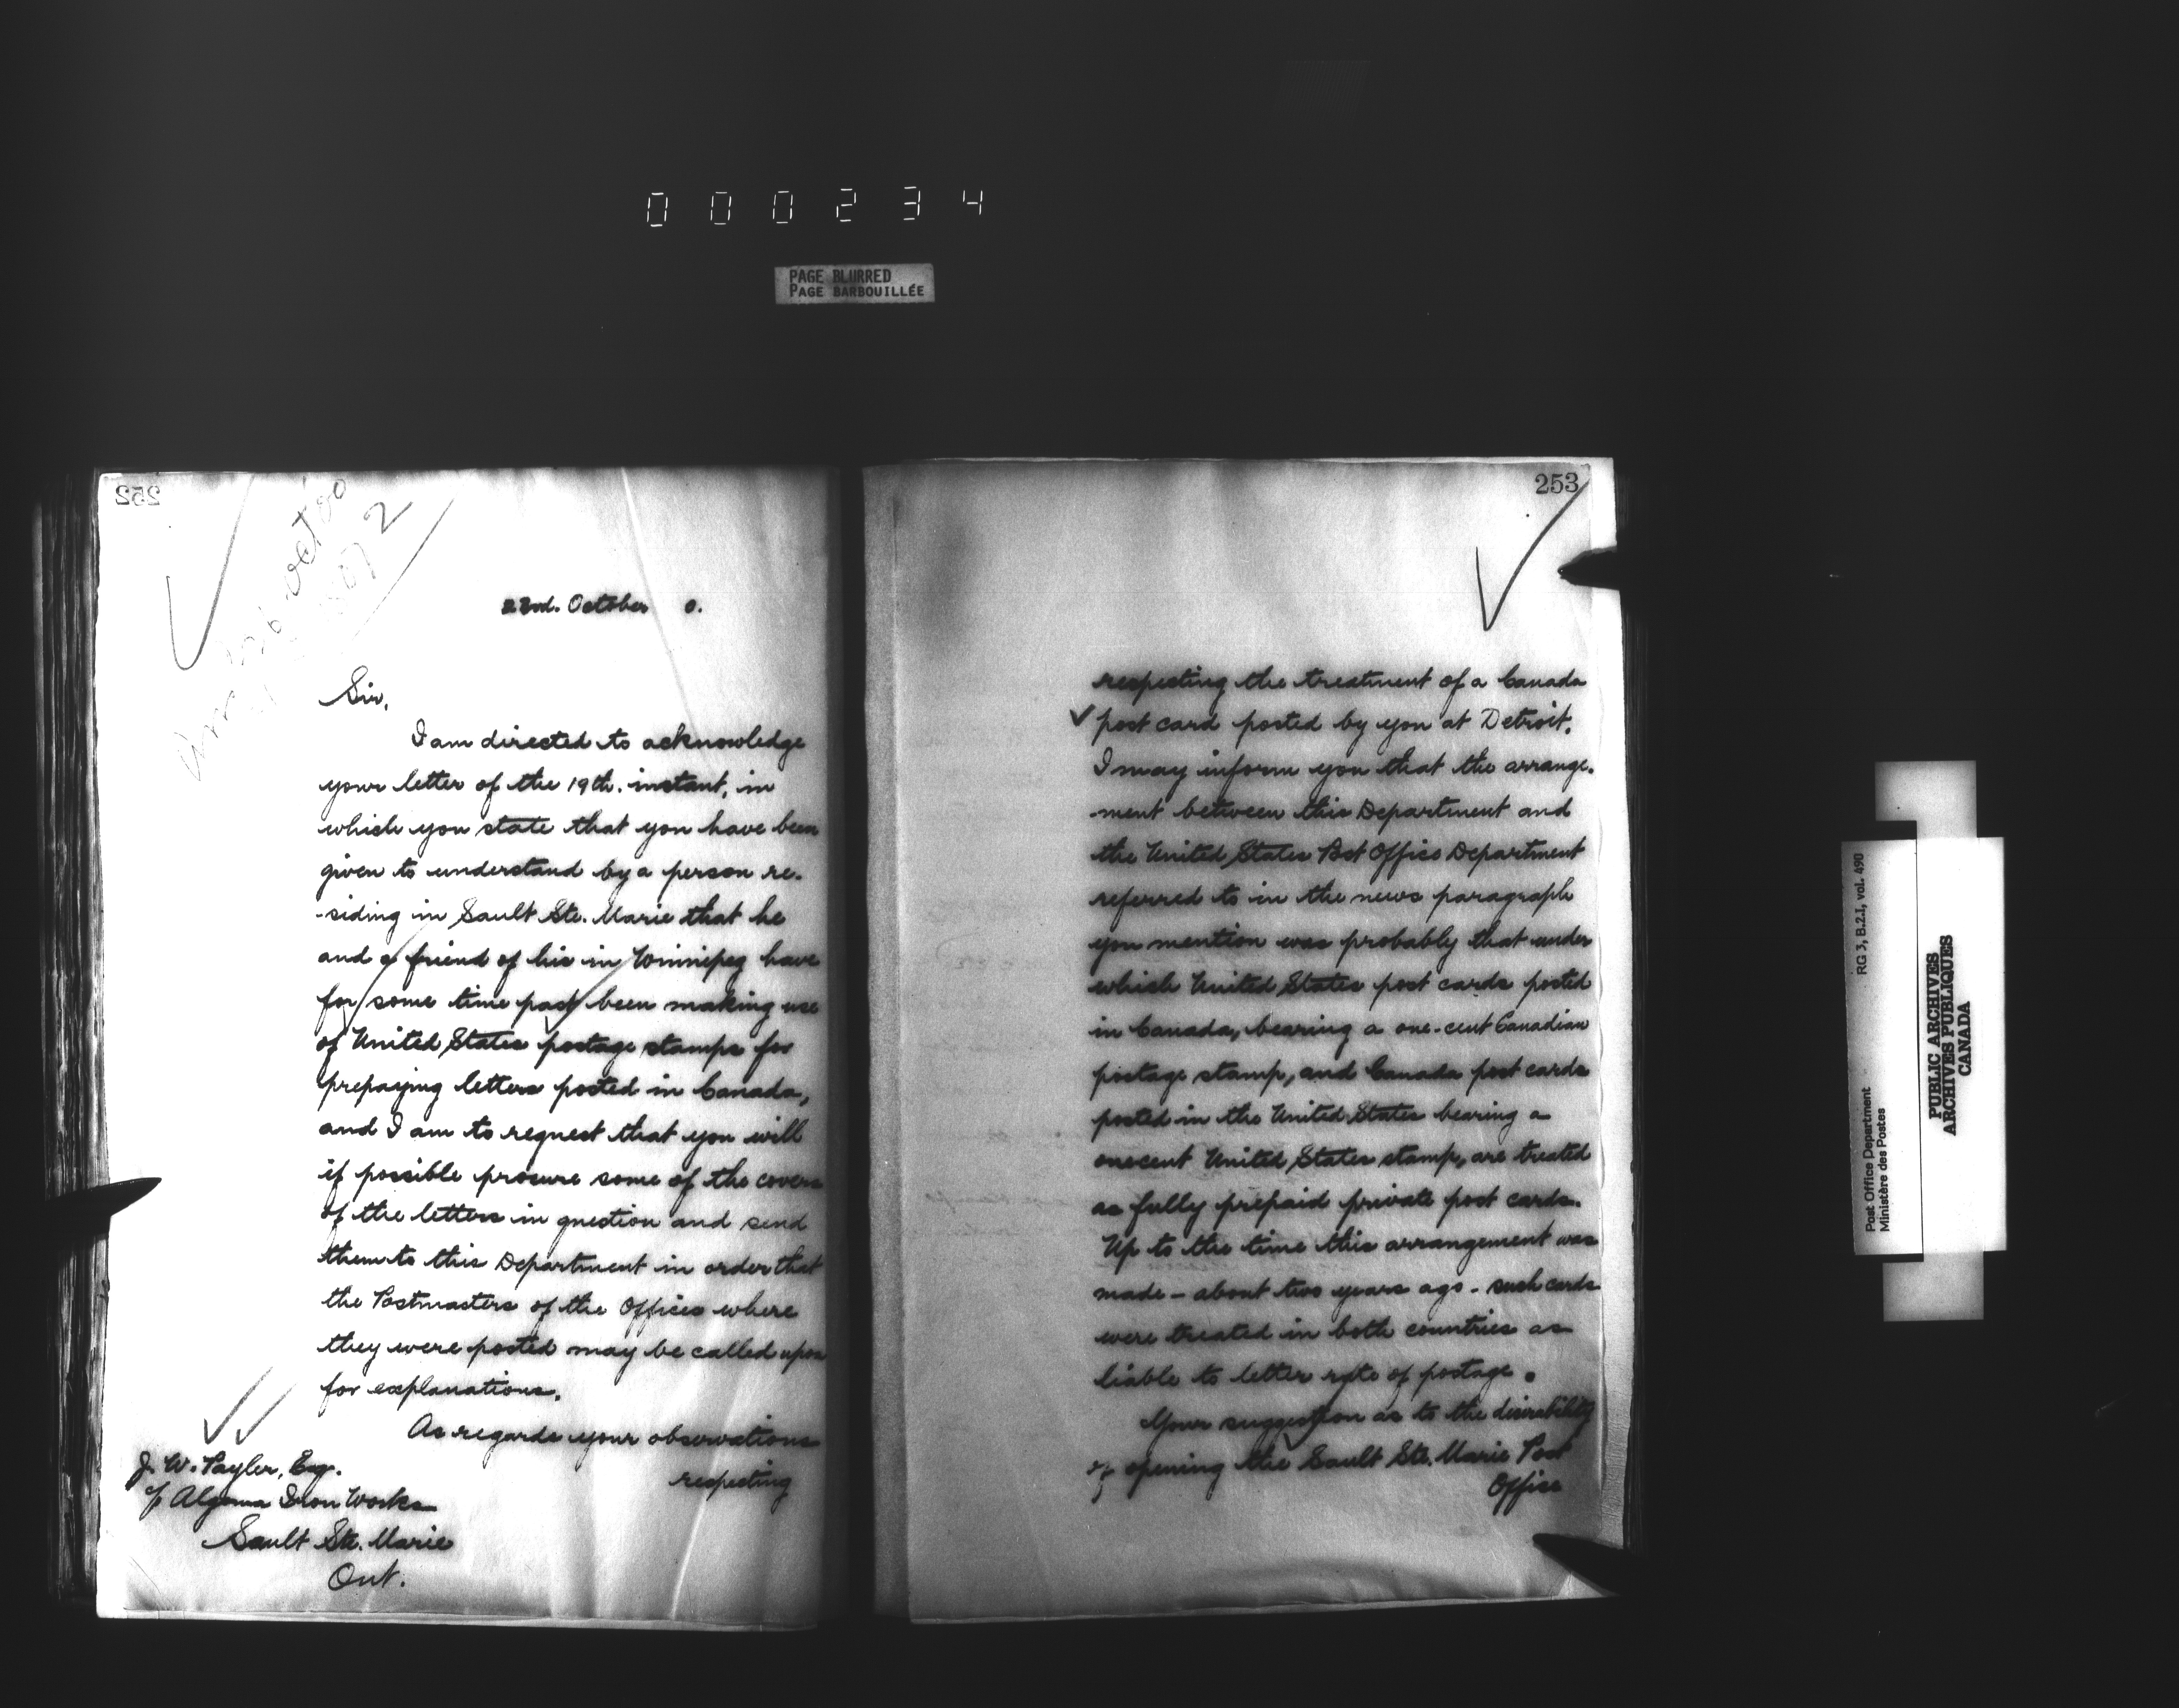 000234
PAGE BLURRED
PAGE BARBOUILLÉE
252
22nd. October 0.
Sir,
I am directed to acknowledge
your letter of the 19th. instant, in
which you state that you have been
given to understand by a person re-
-siding in Sault Ste. Marie that he
and a friend of his in Winnipeg have
for some time past been making use
of United States postage stamps for
prepaying letters posted in Canada,
and I am to request that you will
if possible procure some of the covers
of the letters in question and send
them to this Department in order that
the Postmasters of the Offices where
they were posted may be called upon
for explanations.
As regards your observations
respecting
J. W. Tayler, Esq.
c/o Algoma Iron Works
Sault Ste. Marie
Ont.
253
respecting the treatment of a Canada
post card posted by you at Detroit.
I may inform you that the arrange-
-ment between this Department and
the United States Post Office Department
referred to in the news paragraph
you mention was probably that under
which United States post cards posted
in Canada, bearing a one-cent Canadian
postage stamp, and Canada post cards
posted in the United States bearing a
one cent United States stamp, are treated
as fully prepaid private post cards.
Up to the time this arrangement was
made - about two years ago - such cards
were treated in both countries as
liable to letter rate of postage.
Your suggestion as to the desirability
of opening the Sault Ste. Marie Post
Office
Post Office Department
Ministère des Postes
RG 3, B.2.I, vol. 490
PUBLIC ARCHIVES
ARCHIVES PUBLIQUES
CANADA